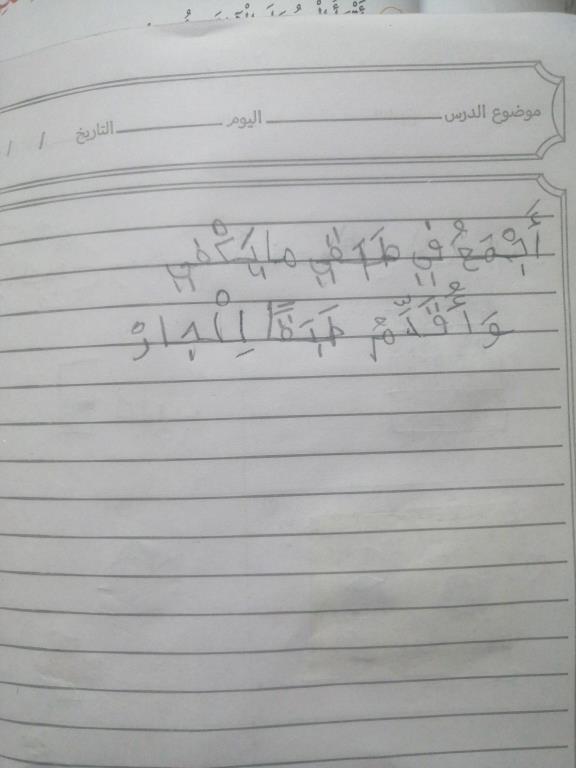 موضوع الدرس اليوم التاريخ / /
أَجْمَعُ فِي طَبَقِي مايَكْفِي
وَأُقَدِّمُ طَبَقًا لِلْجارْ